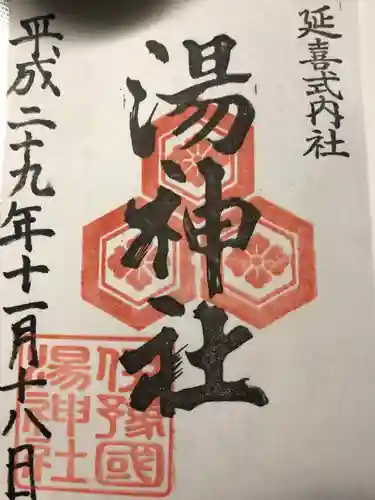 延喜式内社
湯神社
伊豫國
湯神社
平成二十九年十一月十八日